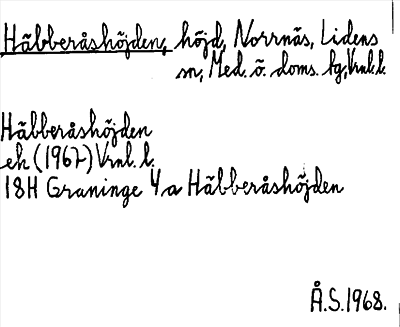 Häbberåshöjden, höjd, Norrnäs, Lidens
sn, Med. ö. doms. tg, Vrnl. l.
Häbberåshöjden
ek (1967) Vrnl. l.
18H Graninge 4a Häbberåshöjden
Å.S. 1968.